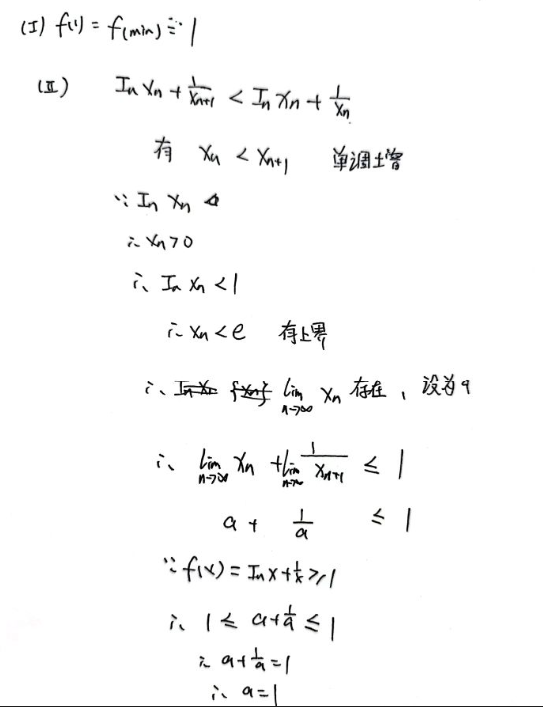 (I) f(1) = f(min) = 1
(II) In Xn + 1/Xn+1 < In Xn + 1/Xn
有 Xn < Xn+1 单调增
∵ In Xn
∴ Xn > 0
∴ In Xn < 1
∴ Xn < e 有上界
∴ lim n→∞ Xn 存在, 设为a
∴ lim n→∞ Xn + lim n→∞ 1/Xn+1 ≤ 1
a + 1/a ≤ 1
∵ f(x) = In x + 1/x ≥ 1
∴ 1 ≤ a + 1/a ≤ 1
∴ a + 1/a = 1
∴ a = 1